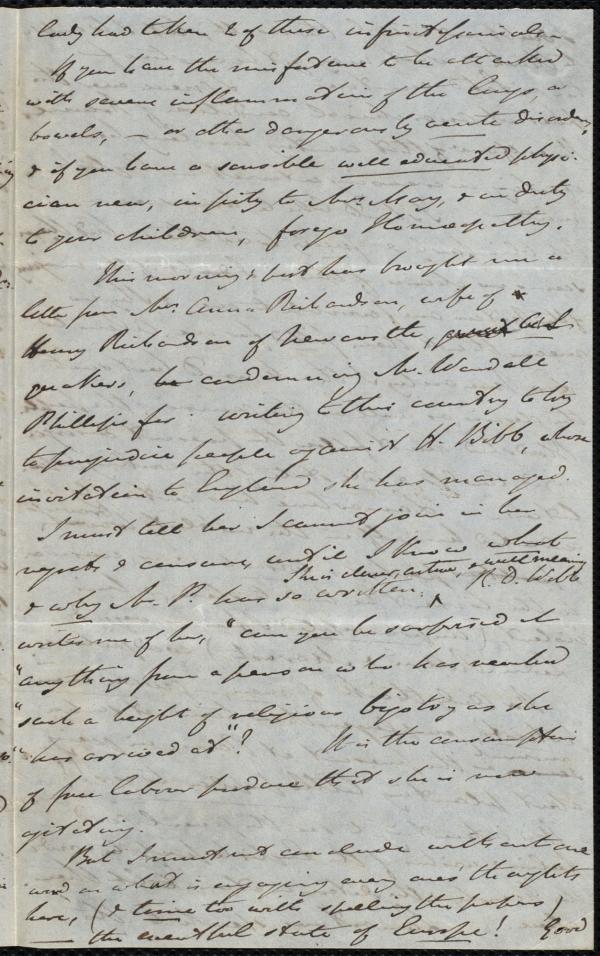 lady had taken 2 of these infinitessimals.
If you have the misfortune to be attacked
with severe inflammation of the lungs, or
bowels, — or other dangerously acute disorder,
& if you have a sensible well educated physi-
cian near, in pity to Mrs. May, & in duty
to your children, forego Homœopathy.
This morning's post has brought me a
letter from Mrs. Anna Richardson, wife of
Henry Richardson of Newcastle,
quakers, condemning Mr. Wendell
Phillips for writing to this country to try
to prejudice people against H. Bibb, whose
invitation to England she has managed.
I must tell her I cannot join in her
regrets & censures, until I know what
& why Mr. P. has so written. She is clever, active, & well meaning
R. D. Webb
writes me of her, "can you be surprised at
"anything from a person who has reached
"such a height of religious bigotry as she
"has arrived at"? It is the consumption
of free labour produce that she is now
agitating.
But I must not conclude without one
word on what is engaging every one's thoughts
here, (& time too with spelling the papers)
— the eventful state of Europe! Good